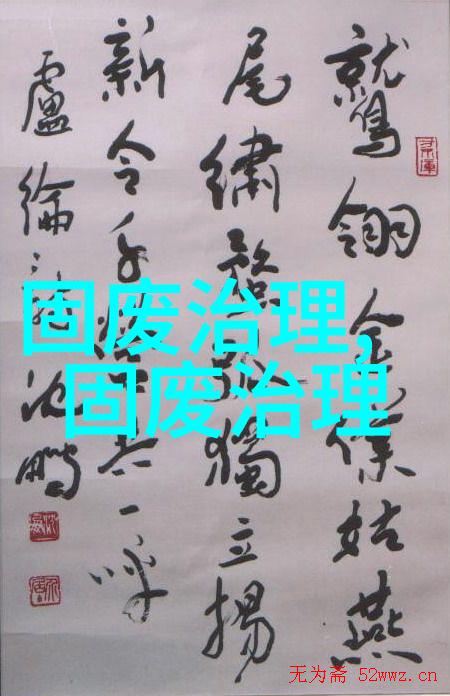 鷲翎金僕姑燕
尾繡蝥弧獨立揚
新令千營共一呼
盧綸詩 沈鵬
固废治理,
固废治理
无为斋 52wwz.cn